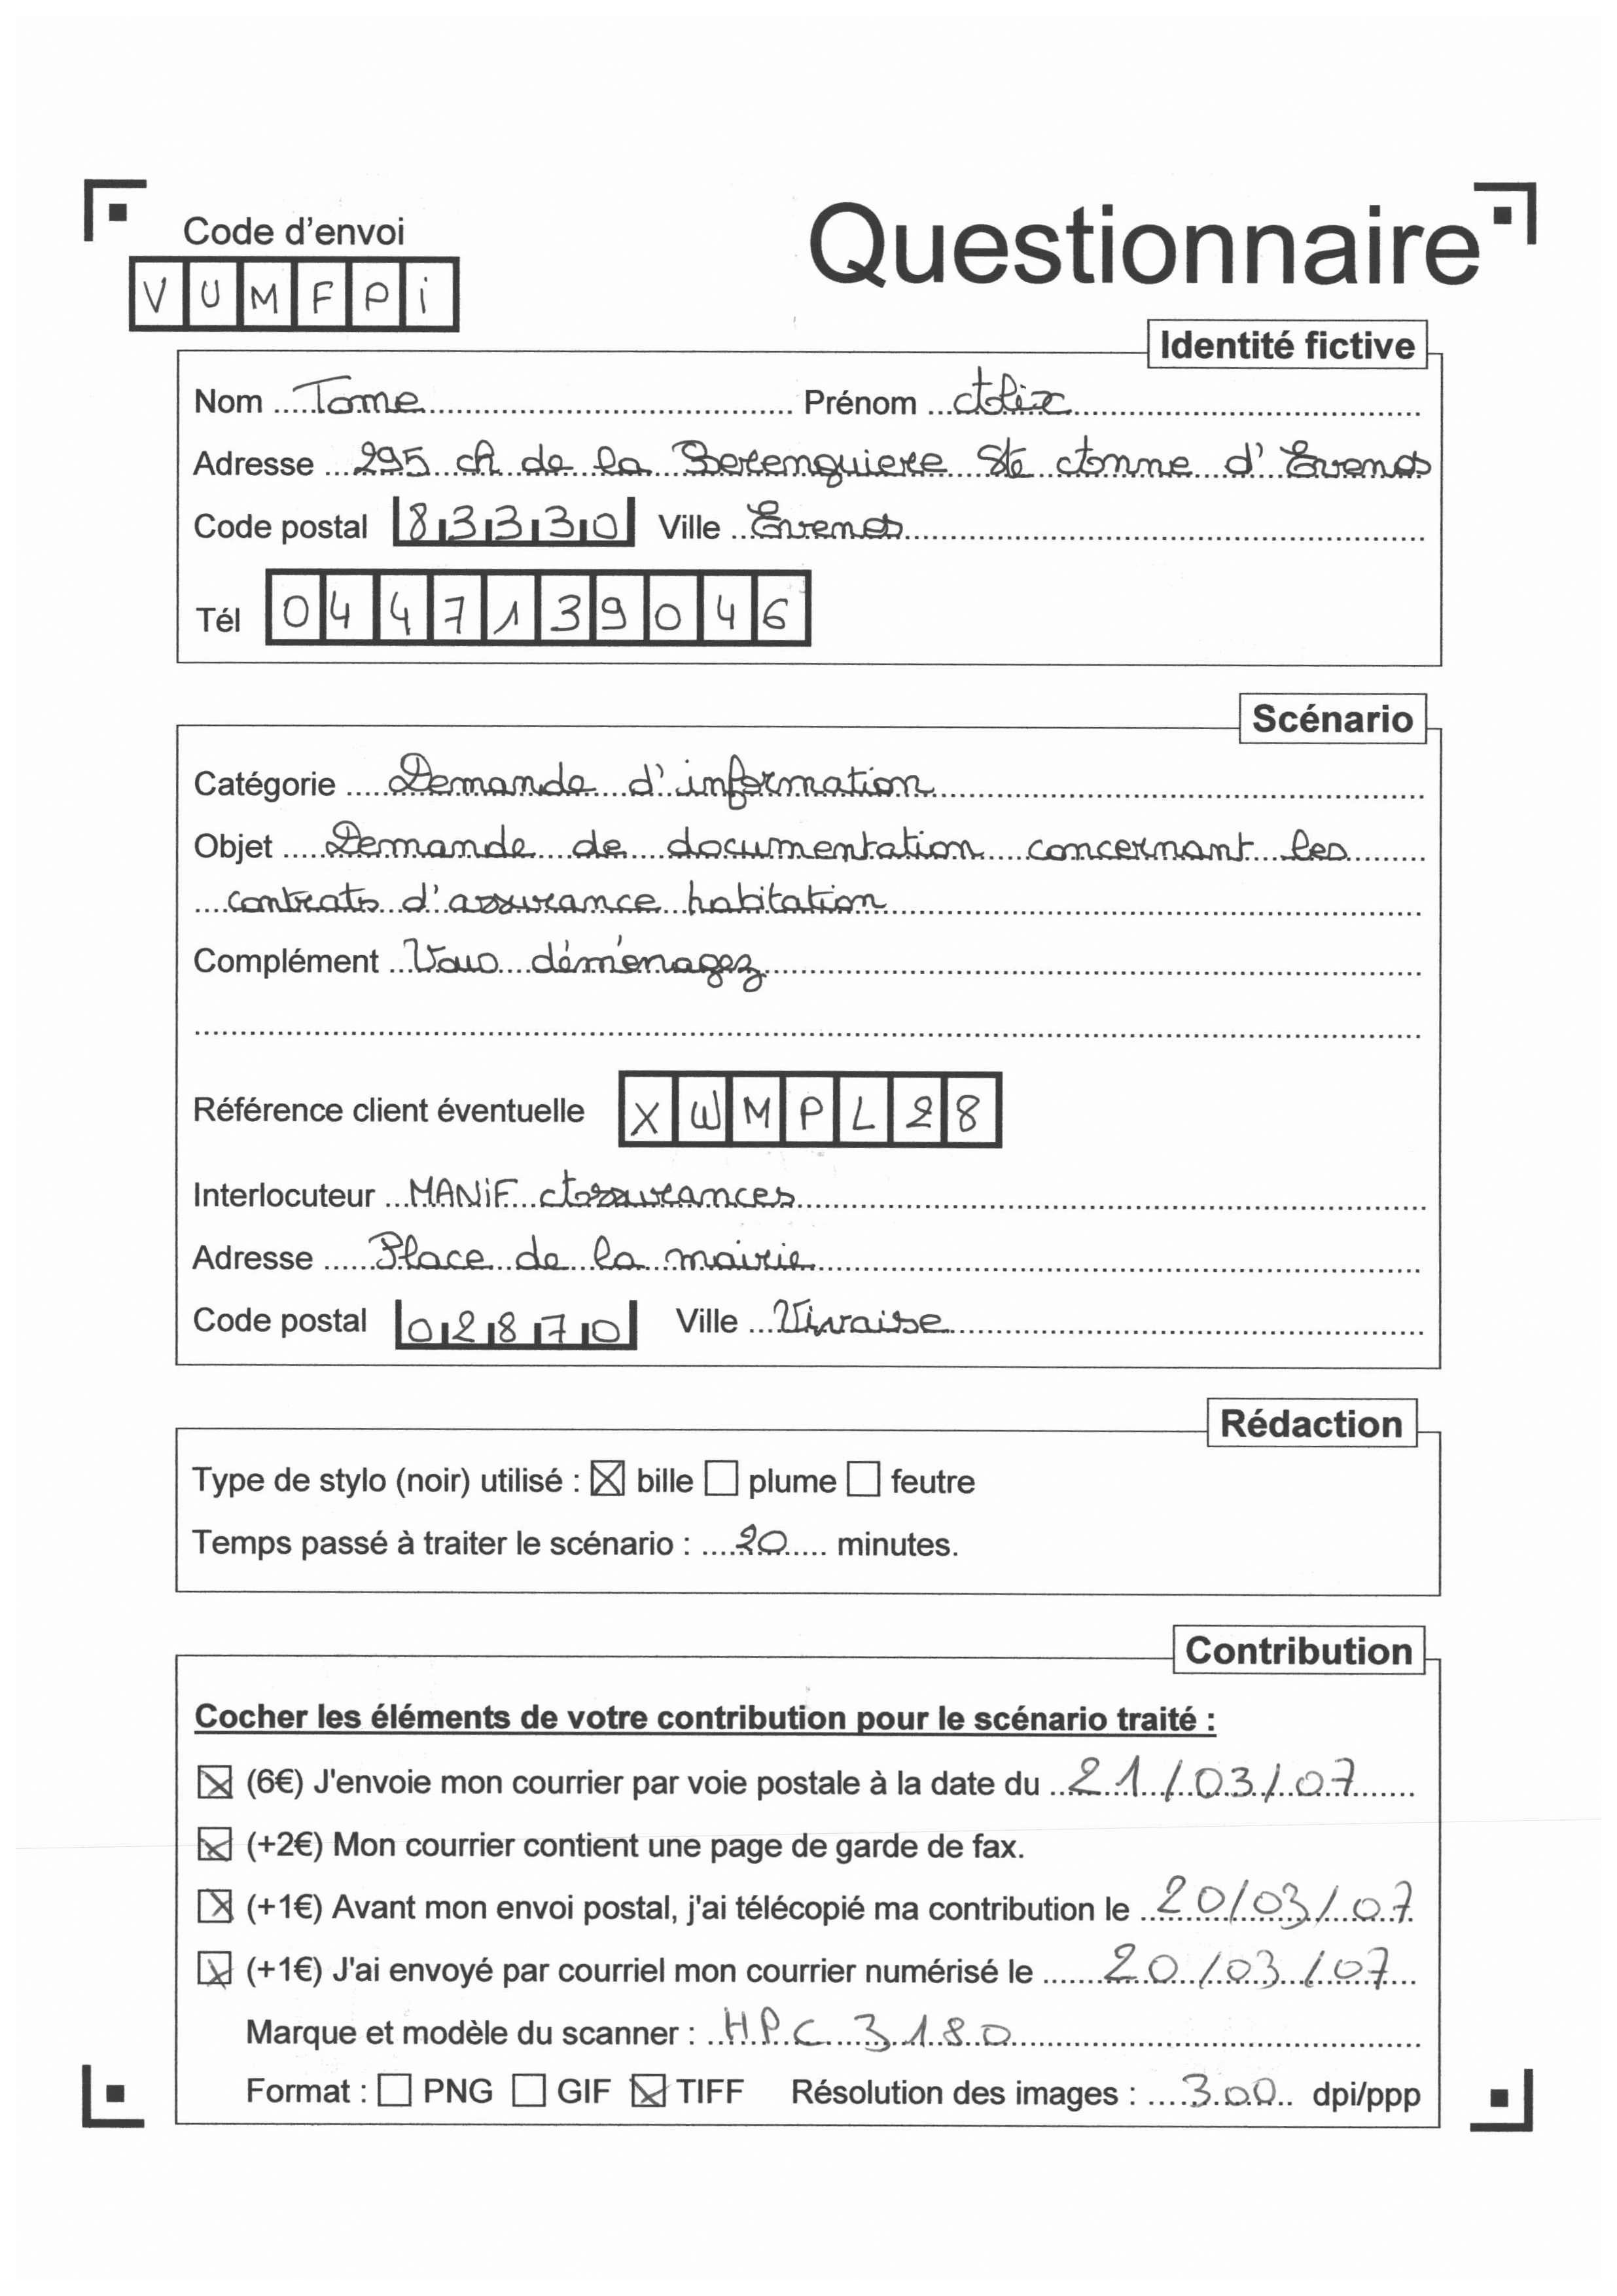 Code d'envoi
Questionnaire
VUMFPi
Identité fictive
Nom Tome Prénom Alix
Adresse 295 ch de la Berenguiere Ste Anne d'Evenos
Code postal 83330 Ville Evenos
Tél 0447139046
Scénario
Catégorie Demande d'information
Objet Demande de documentation concernant les
contrats d'assurance habitation
Complément Vous déménagez
Référence client éventuelle XWMPL28
Interlocuteur MANiF Assurances
Adresse Place de la mairie
Code postal 02870 Ville Vivaise
Rédaction
Type de stylo (noir) utilisé : ☒ bille ☐ plume ☐ feutre
Temps passé à traiter le scénario : 20 minutes.
Contribution
Cocher les éléments de votre contribution pour le scénario traité :
☒ (6€) J'envoie mon courrier par voie postale à la date du 21/03/07
☒ (+2€) Mon courrier contient une page de garde de fax.
☒ (+1€) Avant mon envoi postal, j'ai télécopié ma contribution le 20/03/07
☒ (+1€) J'ai envoyé par courriel mon courrier numérisé le 20/03/07
Marque et modèle du scanner : HPC 3180
Format : ☐ PNG ☐ GIF ☒ TIFF Résolution des images : 300 dpi/ppp